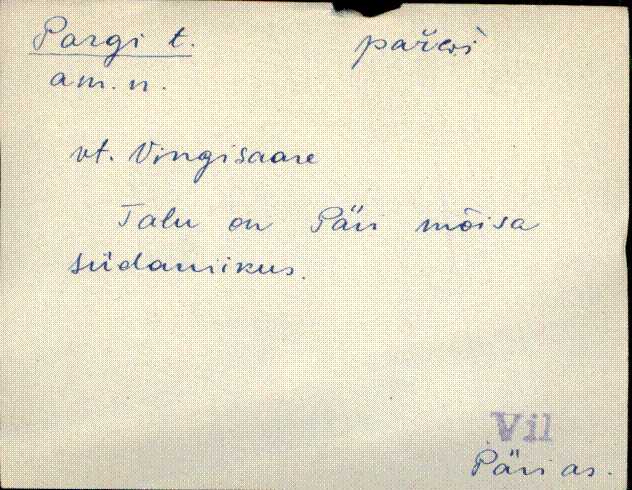 Pargi t.
am. n.
vt. Vingisaare
Talu on Päri mõisa
südamikus.
Vil
Päri as.